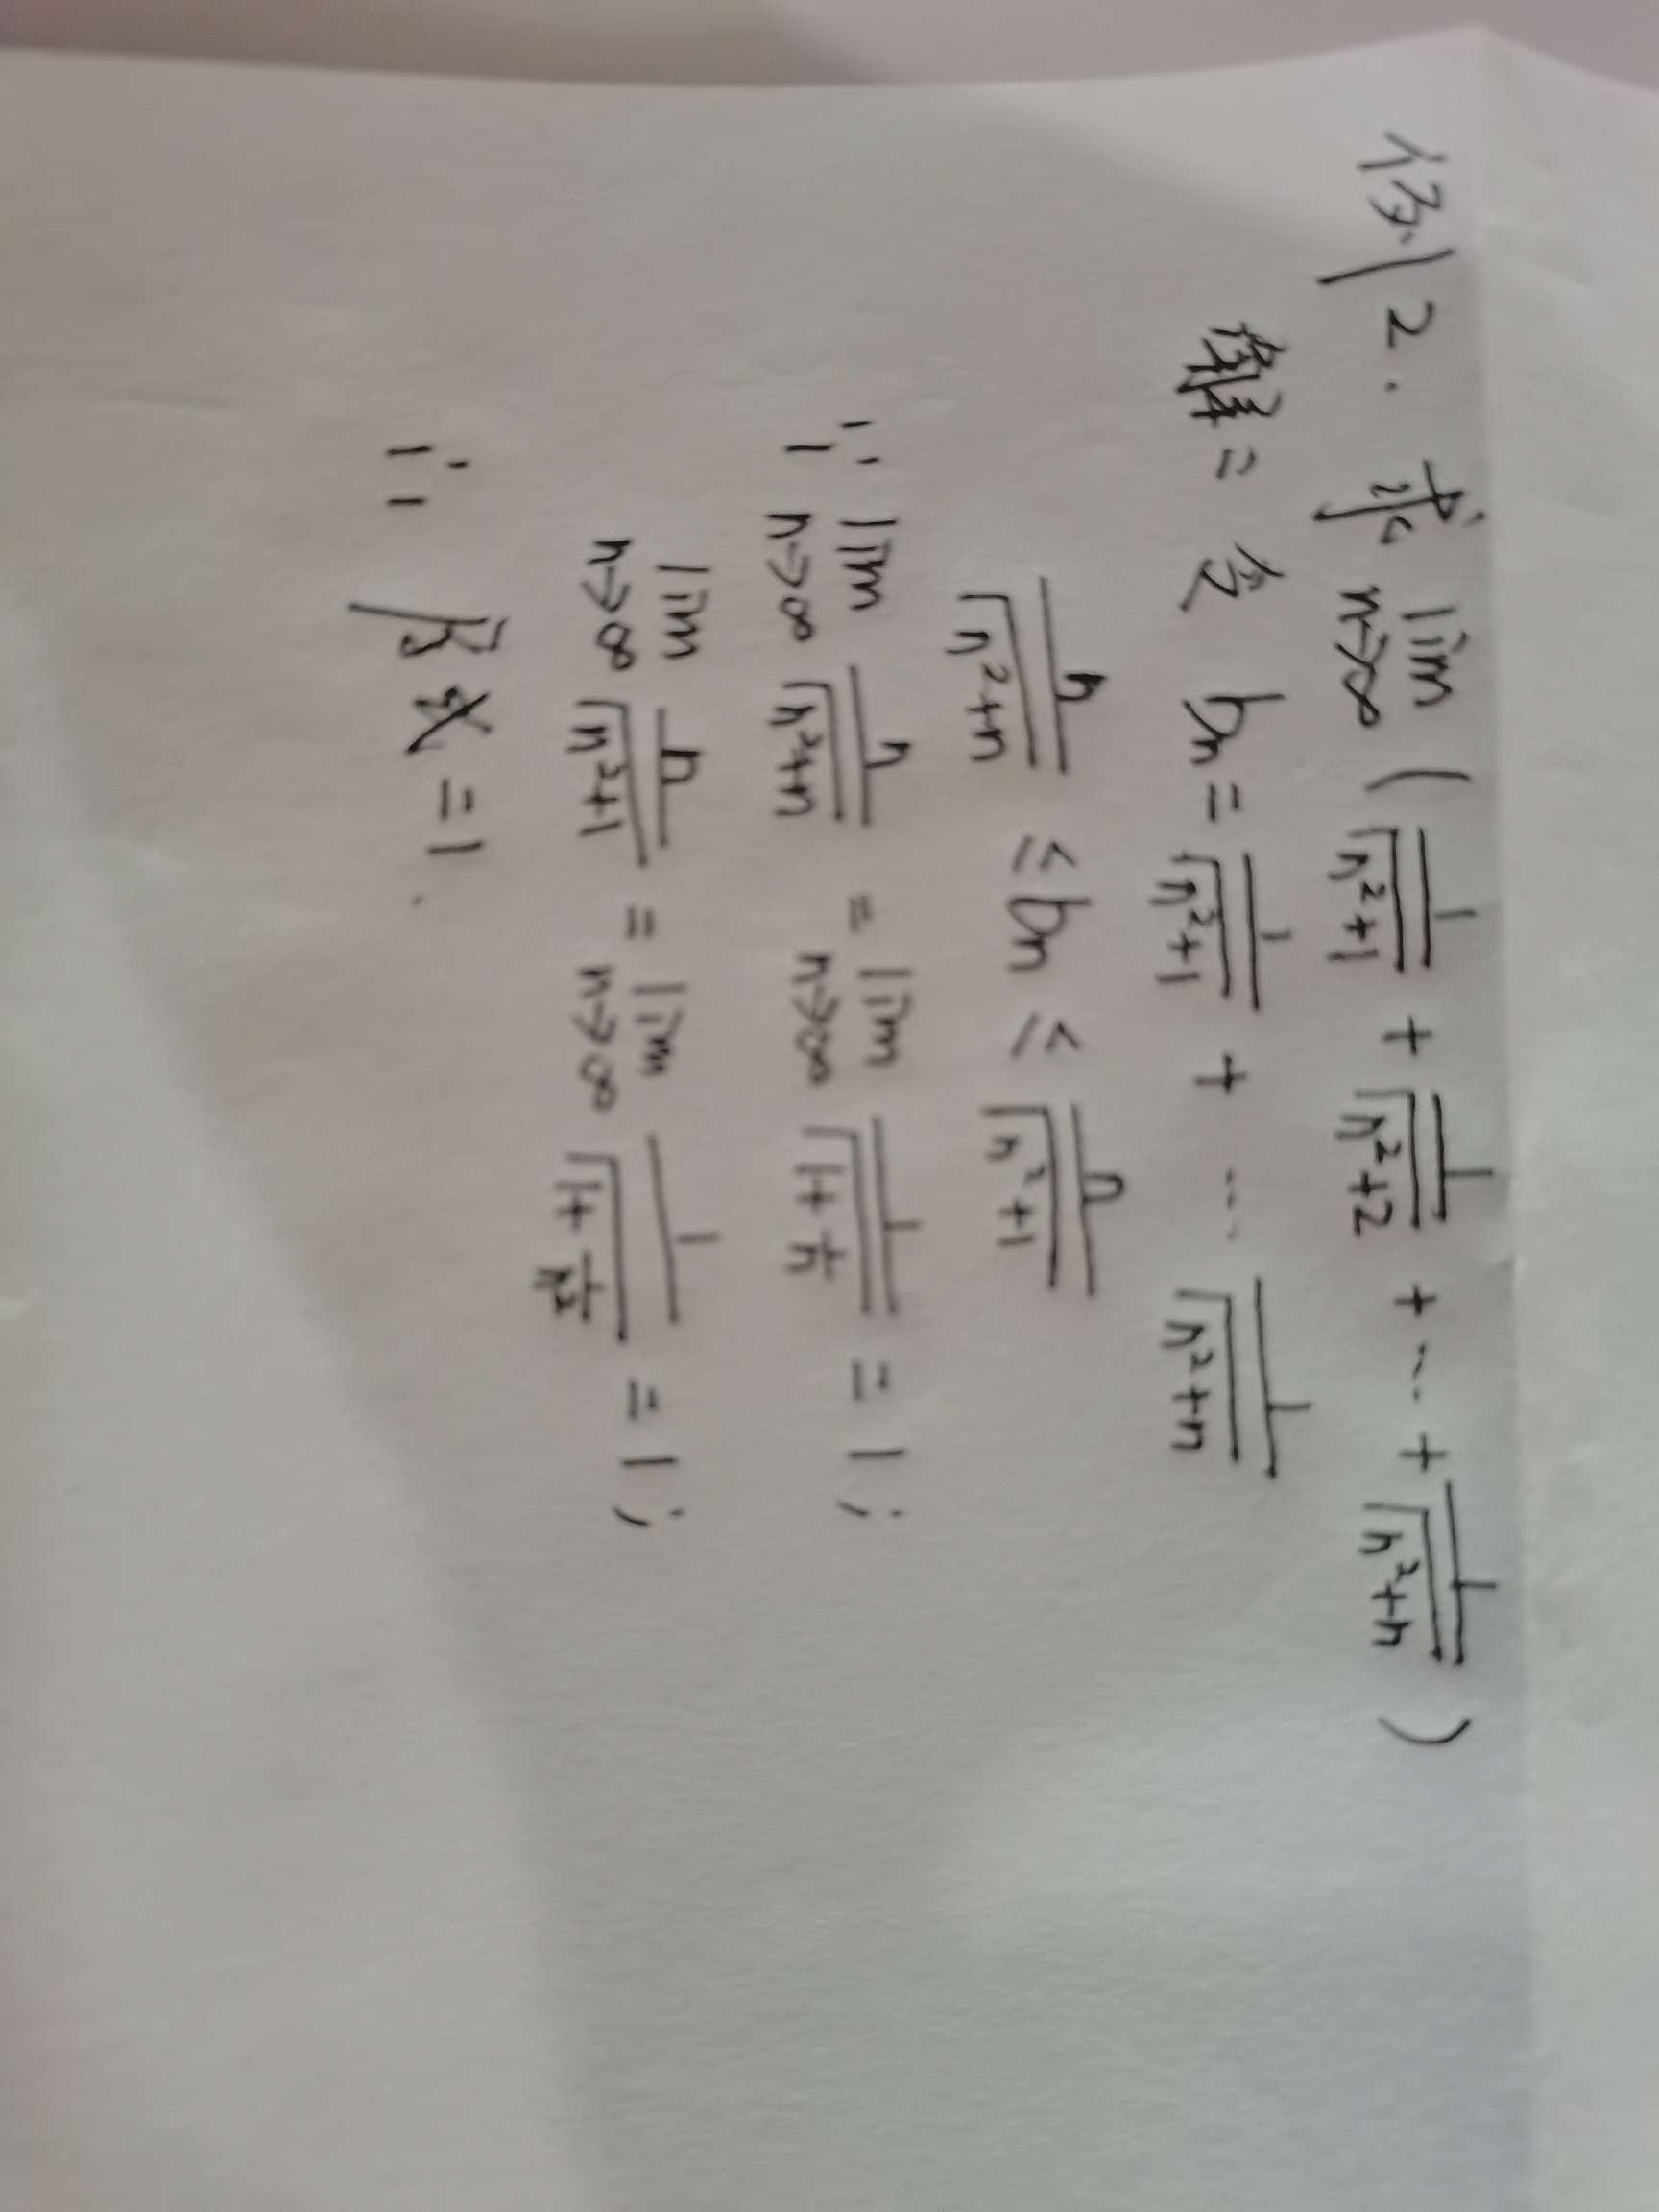 例2. 求 lim n→∞ ( 1/√(n²+1) + 1/√(n²+2) + ... + 1/√(n²+n) )
解: 令 bn = 1/√(n²+1) + ... 1/√(n²+n)
n/√(n²+n) ≤ bn ≤ n/√(n²+1)
∵ lim n→∞ n/√(n²+n) = lim n→∞ 1/√(1+1/n) = 1;
lim n→∞ n/√(n²+1) = lim n→∞ 1/√(1+1/n²) = 1;
∴ 原式 = 1.